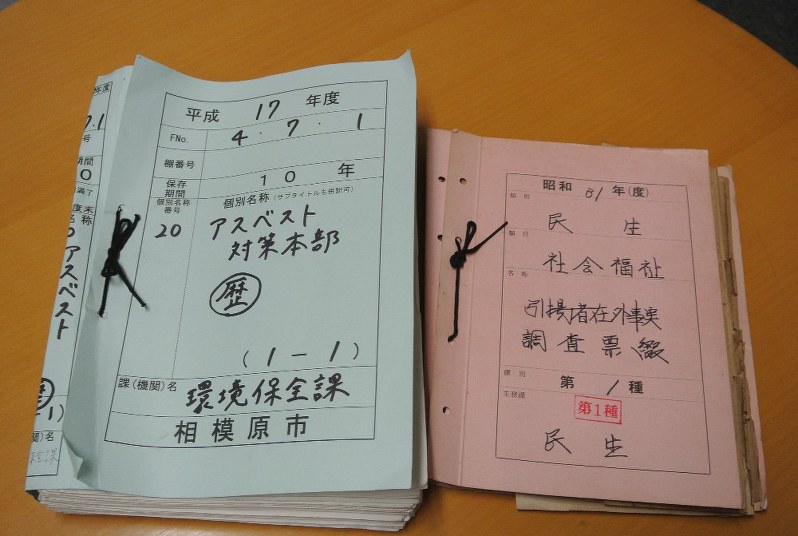 平成 17 年度
FNo. 4・7・1
棚番号
保存期間 10 年
個別名称番号 個別名称 (サブタイトルも併記可)
20 アスベスト
対策本部
歴
(1-1)
課(機関)名 環境保全課
相模原市
年度
7.1
号
期間
0
満了
アスベスト
1)
関)名
昭和 31 年(度)
類別 民 生
類目 社会福祉
名称 引揚者在外事実
調査票綴
種別 第 1 種
第1種
主務課 民 生